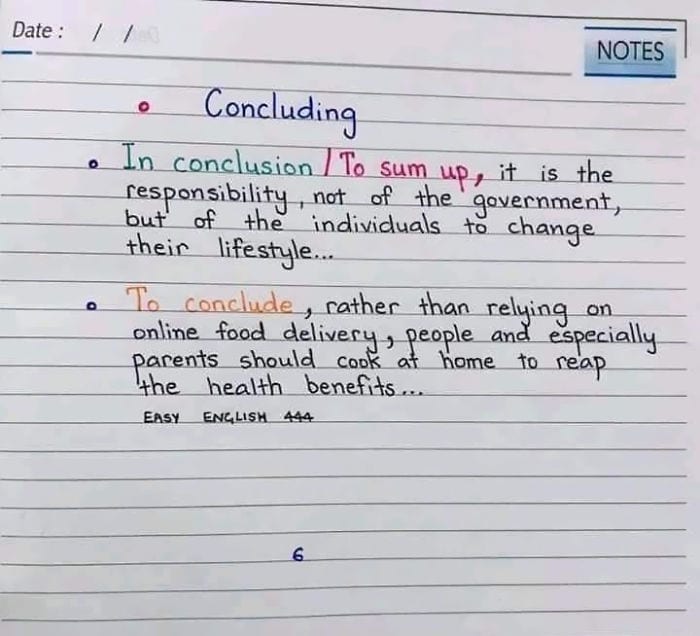 Date : / /
NOTES
Concluding
In conclusion / To sum up, it is the
responsibility, not of the government,
but of the individuals to change
their lifestyle...
To conclude, rather than relying on
online food delivery, people and especially
parents should cook at home to reap
the health benefits...
EASY ENGLISH 444
6